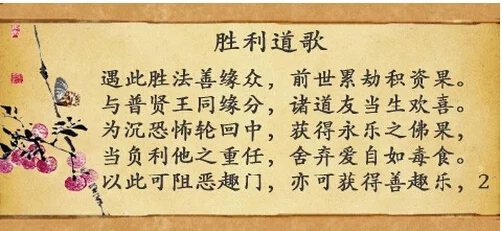 胜利道歌
遇此胜法善缘众，前世累劫积资果。
与普贤王同缘分，诸道友当生欢喜。
为沉恐怖轮回中，获得永乐之佛果，
当负利他之重任，舍弃爱自如毒食。
以此可阻恶趣门，亦可获得善趣乐，2